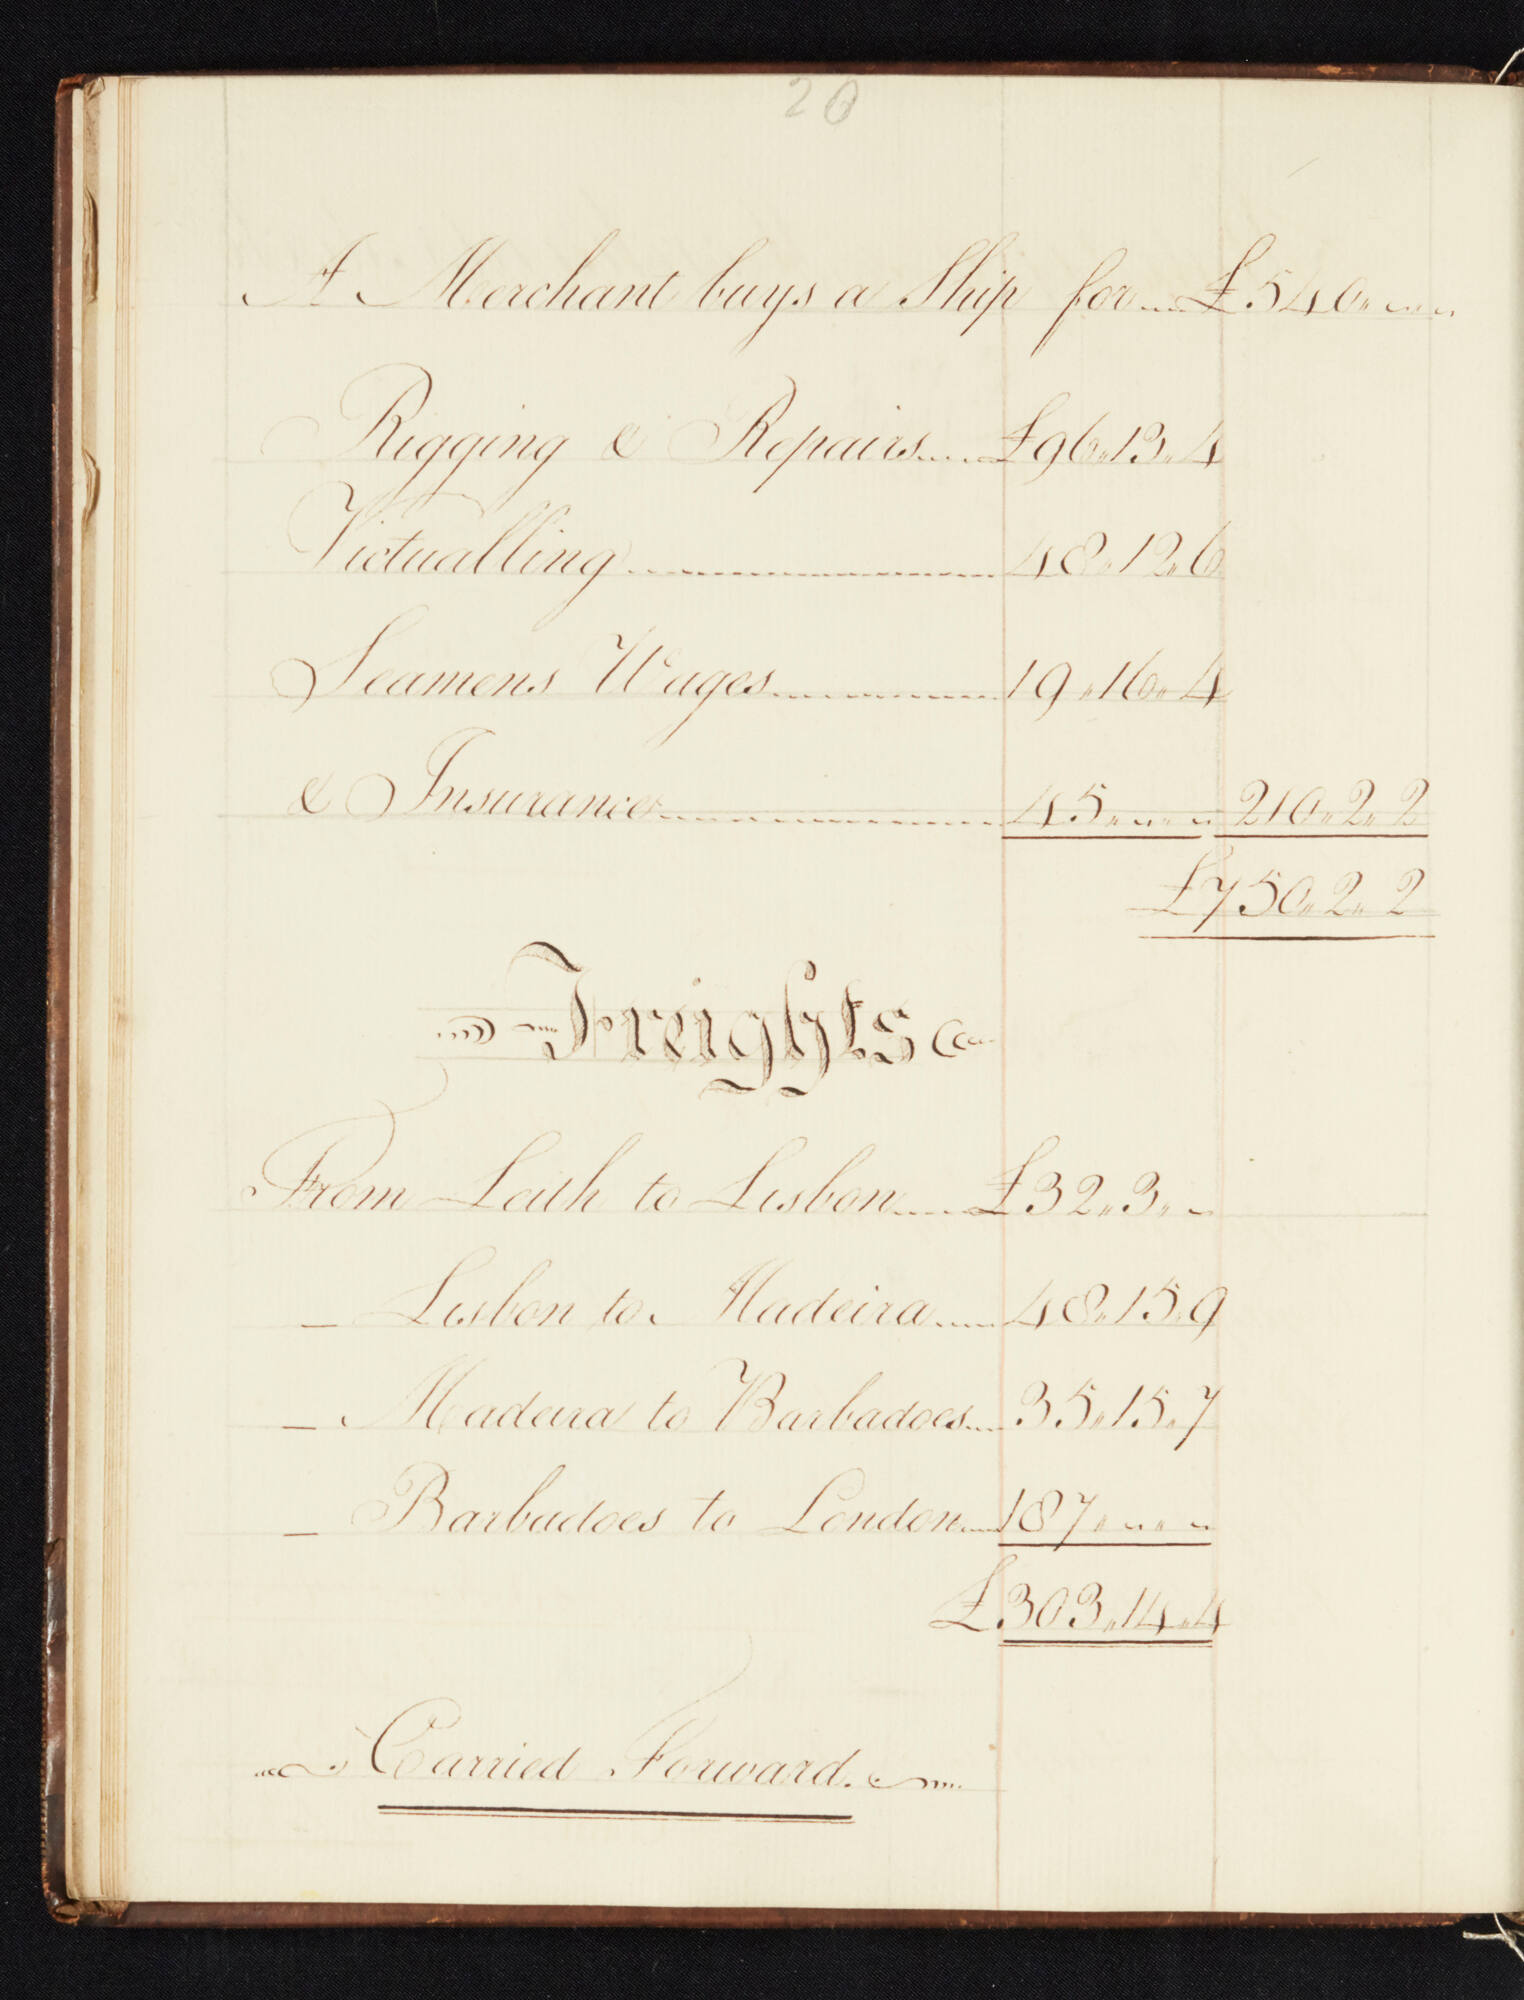 20
A Merchant buys a Ship for £540 " " "
Rigging & Repairs £96 " 13 " 4
Victualling 48 " 12 " 6
Seamens Wages 19 " 16 " 4
& Insurances 45 " " " 210 " 2 " 2
£750 " 2 " 2
Freights
From Leith to Lisbon £32 " 3 " "
– Lisbon to Madeira 48 " 15 " 9
– Madeira to Barbadoes 35 " 15 " 7
– Barbadoes to London 187 " " "
£303 " 14 " 4
Carried Forward.